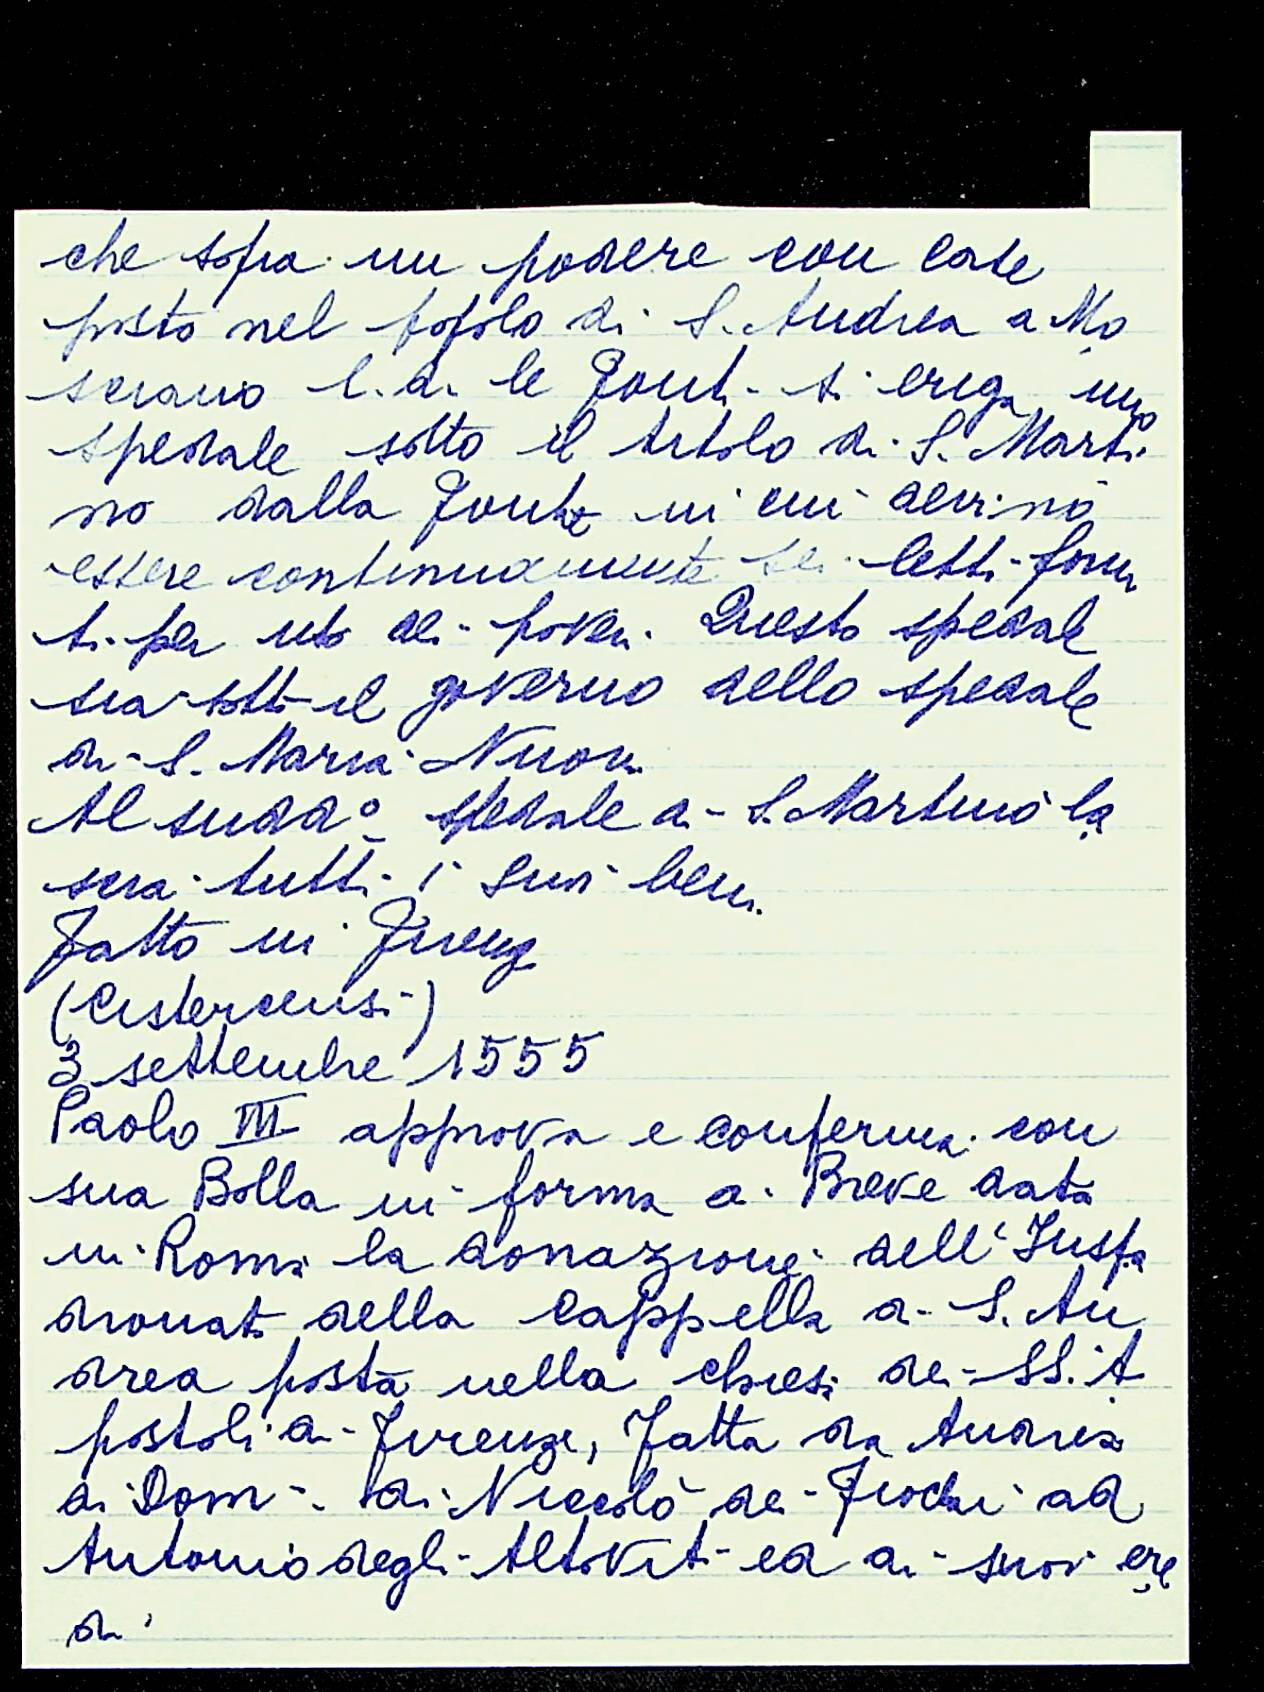 che sopra un podere con case
posto nel popolo di S. Andrea a Mo
sciano l.d. le Fonti si eriga uno
spedale sotto il titolo di S. Marti
no dalla Fonte in cui devino
essere continuamente sei letti forni
ti per uso dei poveri. Questo spedale
sia sotto il governo dello spedale
di S. Maria Nuova
Al sudd° spedale di S. Martino la
scia tutti i suoi beni.
Fatto in Firenze
(Cistercensi)
3 settembre 1555
Paolo III approva e conferma con
sua Bolla in forma di Breve data
in Roma la donazione dell'Juspa
dronato della Cappella di S. An
drea posta nella chiesa dei SS. A
postoli di Firenze, fatta da Andrea
di Dom. di Niccolò dei ad
Antonio degli Altoviti ed ai suoi ere
di